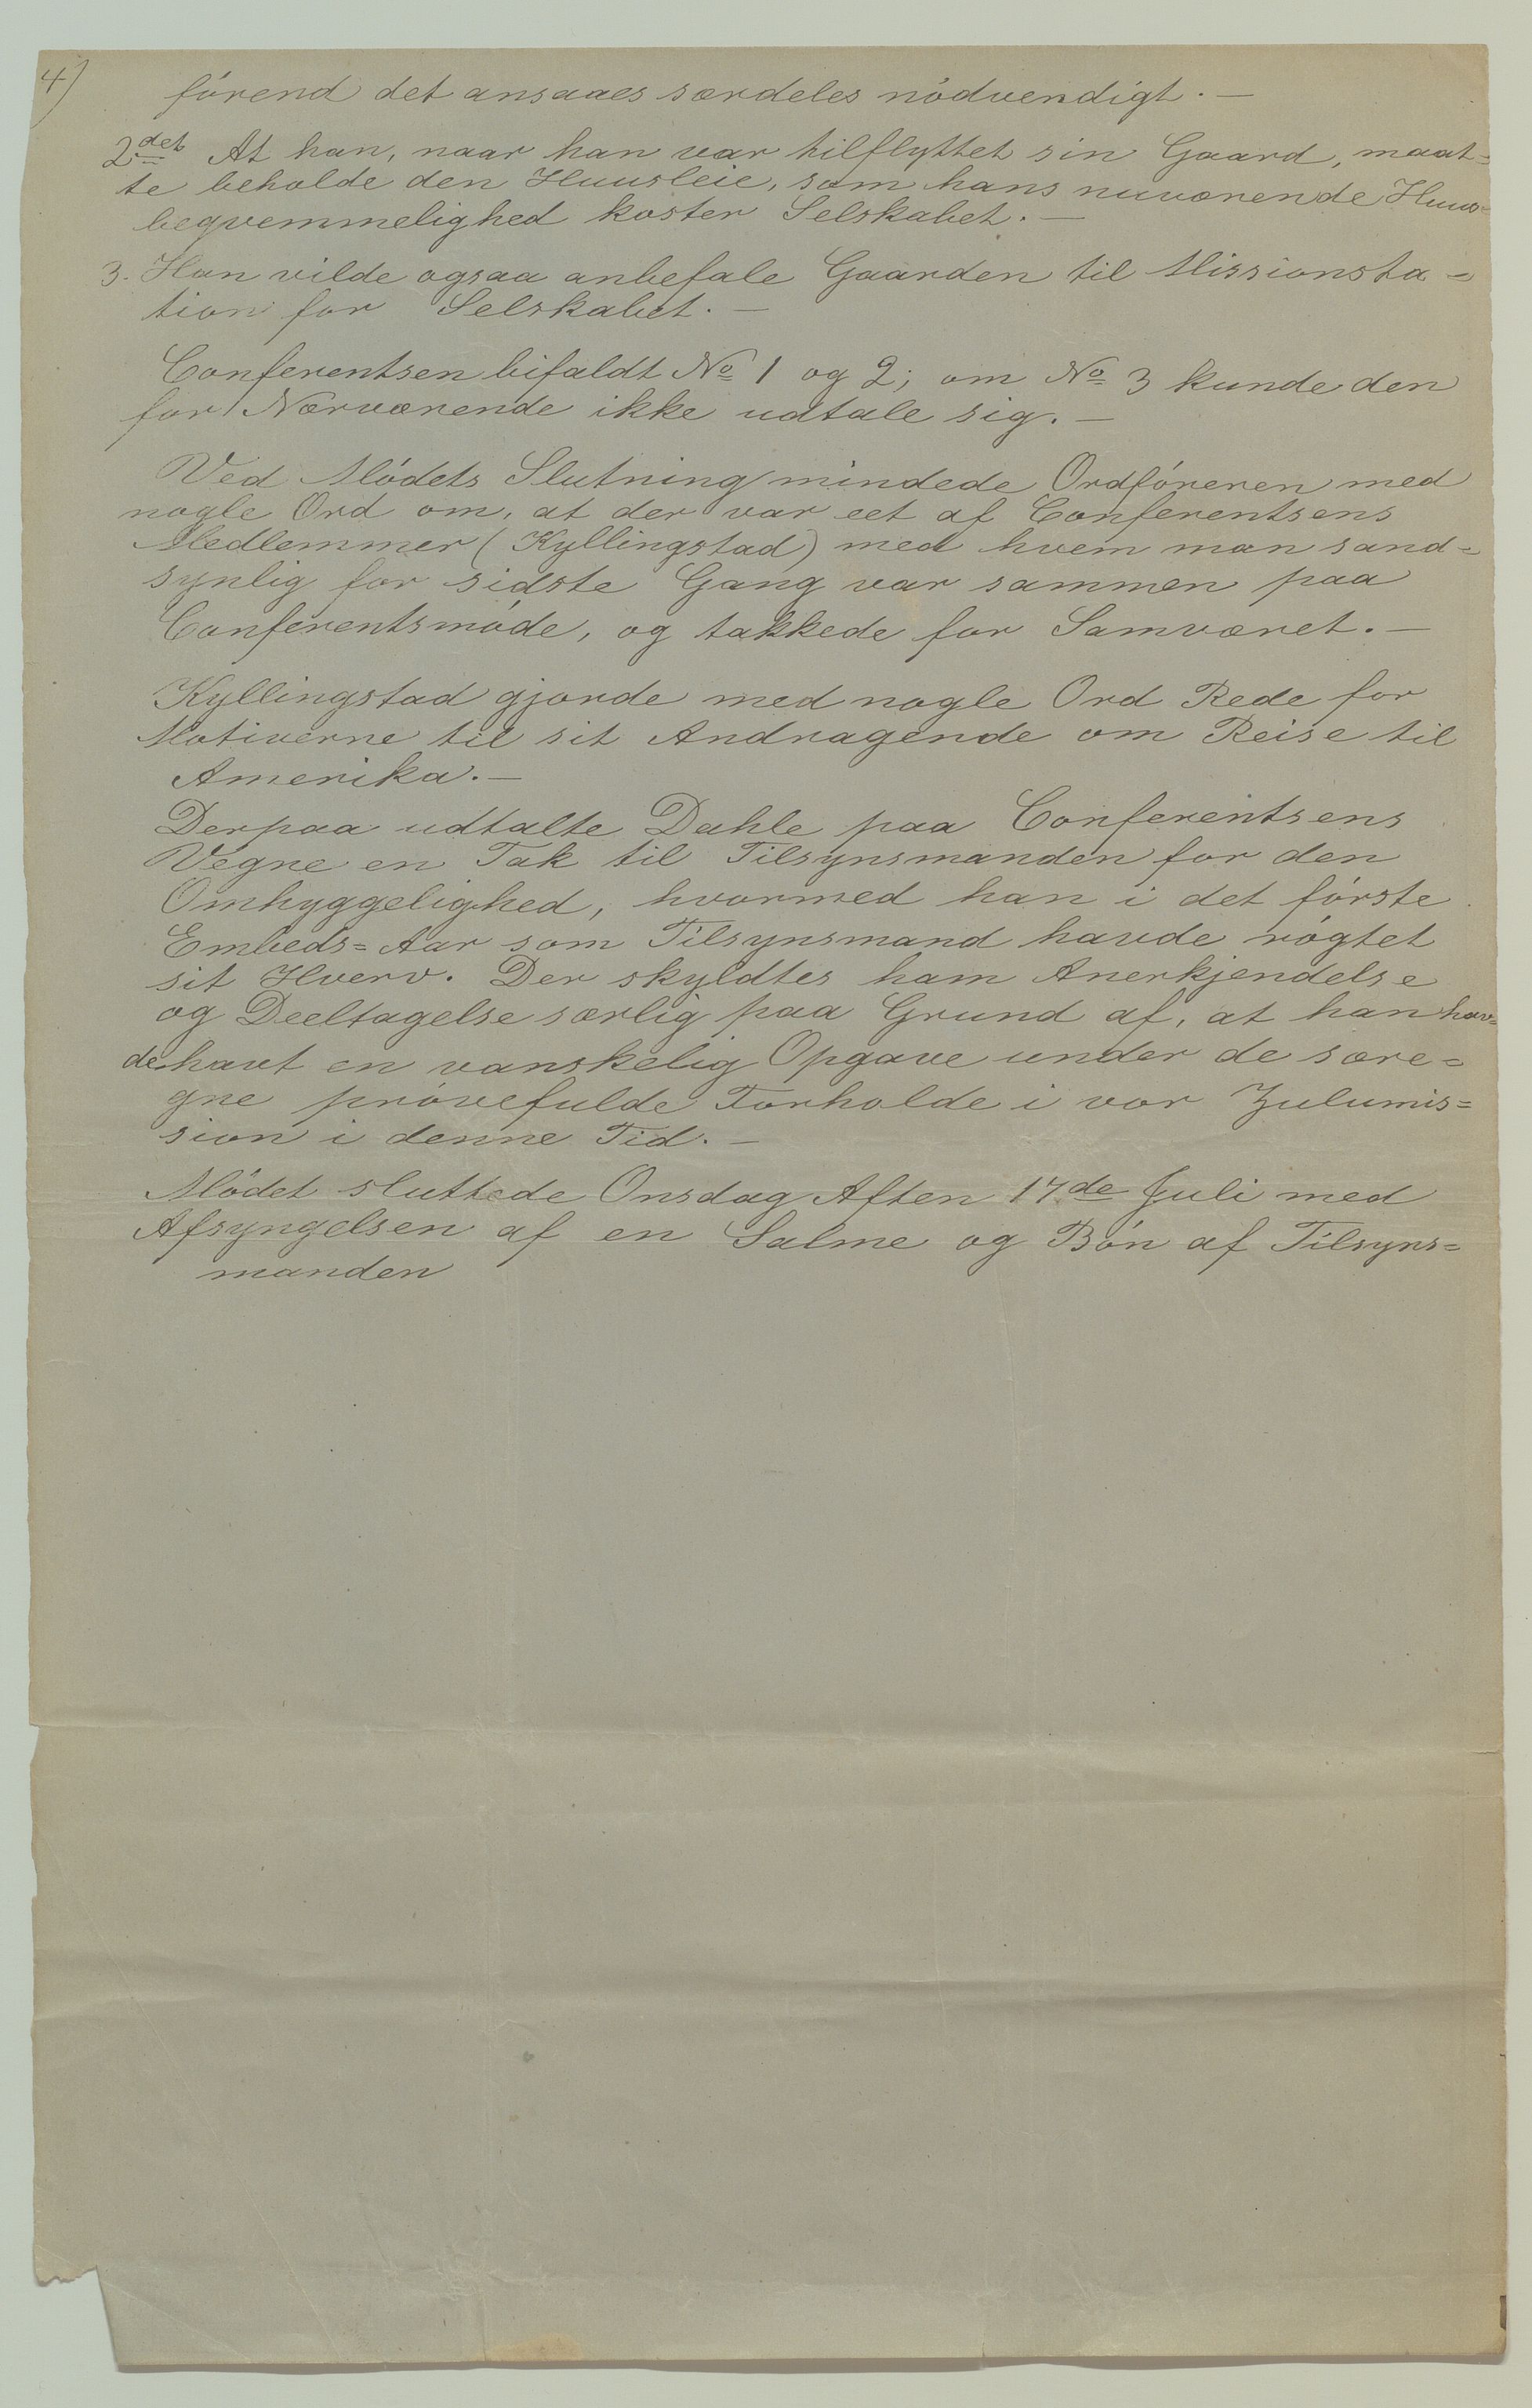 4)
förend det ansaaes særdeles nödvendigt. —
2det At han, naar han var tilflyttet sin Gaard, maat=
te beholde den Huusleie, som hans nuværende Huus=
beqvemmelighed koster Selskabet. —
3. Han vilde ogsaa anbefale Gaarden til Missionsta=
tion for Selskabet. —
Conferentsen bifaldt No 1 og 2; om No 3 kunde den
for Nærværende ikke udtale sig. —
Ved Mödets Slutning mindede Ordföreren med
nogle Ord om, at der var eet af Conferentsens
Medlemmer (Kyllingstad) med hvem man sand=
synlig for sidste Gang var sammen paa
Conferentsmöde, og takkede for Samværet. —
Kyllingstad gjorde med nogle Ord Rede for
Motiverne til sit Andragende om Reise til
Amerika. —
Derpaa udtalte Dahle paa Conferentsens
Vegne en Tak til Tilsynsmanden for den
Omhyggelighed, hvormed han i det förste
Embeds=Aar som Tilsynsmand havde rögtet
sit Hverv. Der skyldtes ham Anerkjendelse
og Deeltagelse særlig paa Grund af, at han hav=
de havt en vanskelig Opgave under de sære=
gne prövefulde Forholde i vor Zulumis=
sion i denne Tid. —
Mödet sluttede Onsdag Aften 17de Juli med
Afsyngelsen af en Salme og Bön af Tilsyns=
manden